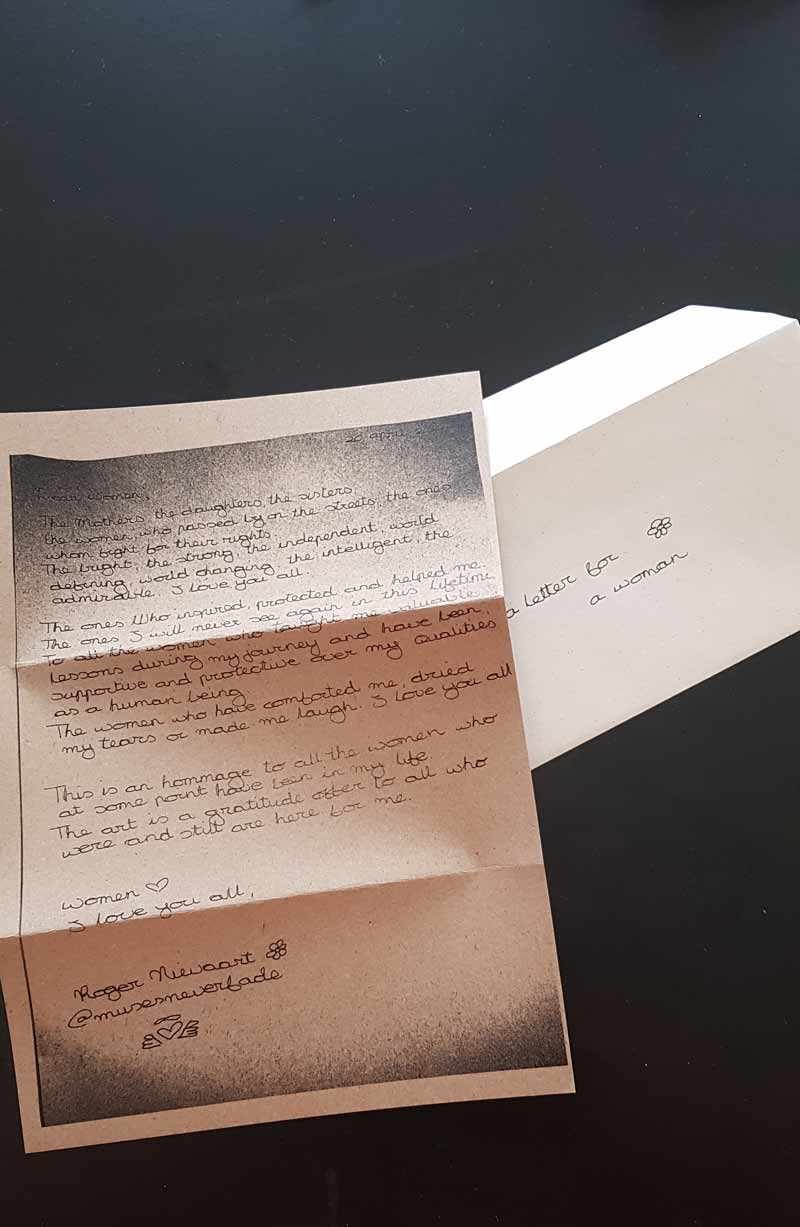 20 april
Dear women,
The Mothers, the daughters, the sisters
the women, who passed by on the streets, the ones
whom fight for their rights.
The bright, the strong, the independent, world
defining, world changing, the intelligent, the
admirable. I love you all.
The ones Who inspired, protected and helped me.
The ones I will never see again in this lifetime
To all the women who taught me valuable
Lessons during my journey and have been,
supportive and protective over my Qualities
as a human being
The women who have comforted me, dried
my tears or made me laugh. I love you all
This is an hommage to all the women who
at some point have been in my life.
The art is a gratitude offer to all who
were and still are here for me.
women ♡
I love you all,
Roger Niewaart
@musesneverfade
a letter for
a woman